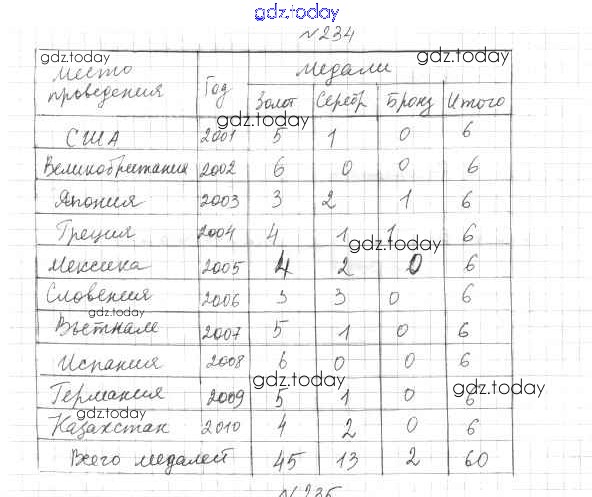 gdz.today
№234
gdz.today gdz.today
Место проведения Год Медали
Золот Серебр Бронз Итого
gdz.today
США 2001 5 1 0 6
Великобритания 2002 6 0 0 6
Япония 2003 3 2 1 6
Греция 2004 4 1 1 6
gdz.today
Мексика 2005 4 2 0 6
Словения 2006 3 3 0 6
Вьетнам 2007 5 1 0 6
Испания 2008 6 0 0 6
gdz.today gdz.today
Германия 2009 5 1 0 6
gdz.today
Казахстан 2010 4 2 0 6
Всего медалей 45 13 2 60
№235